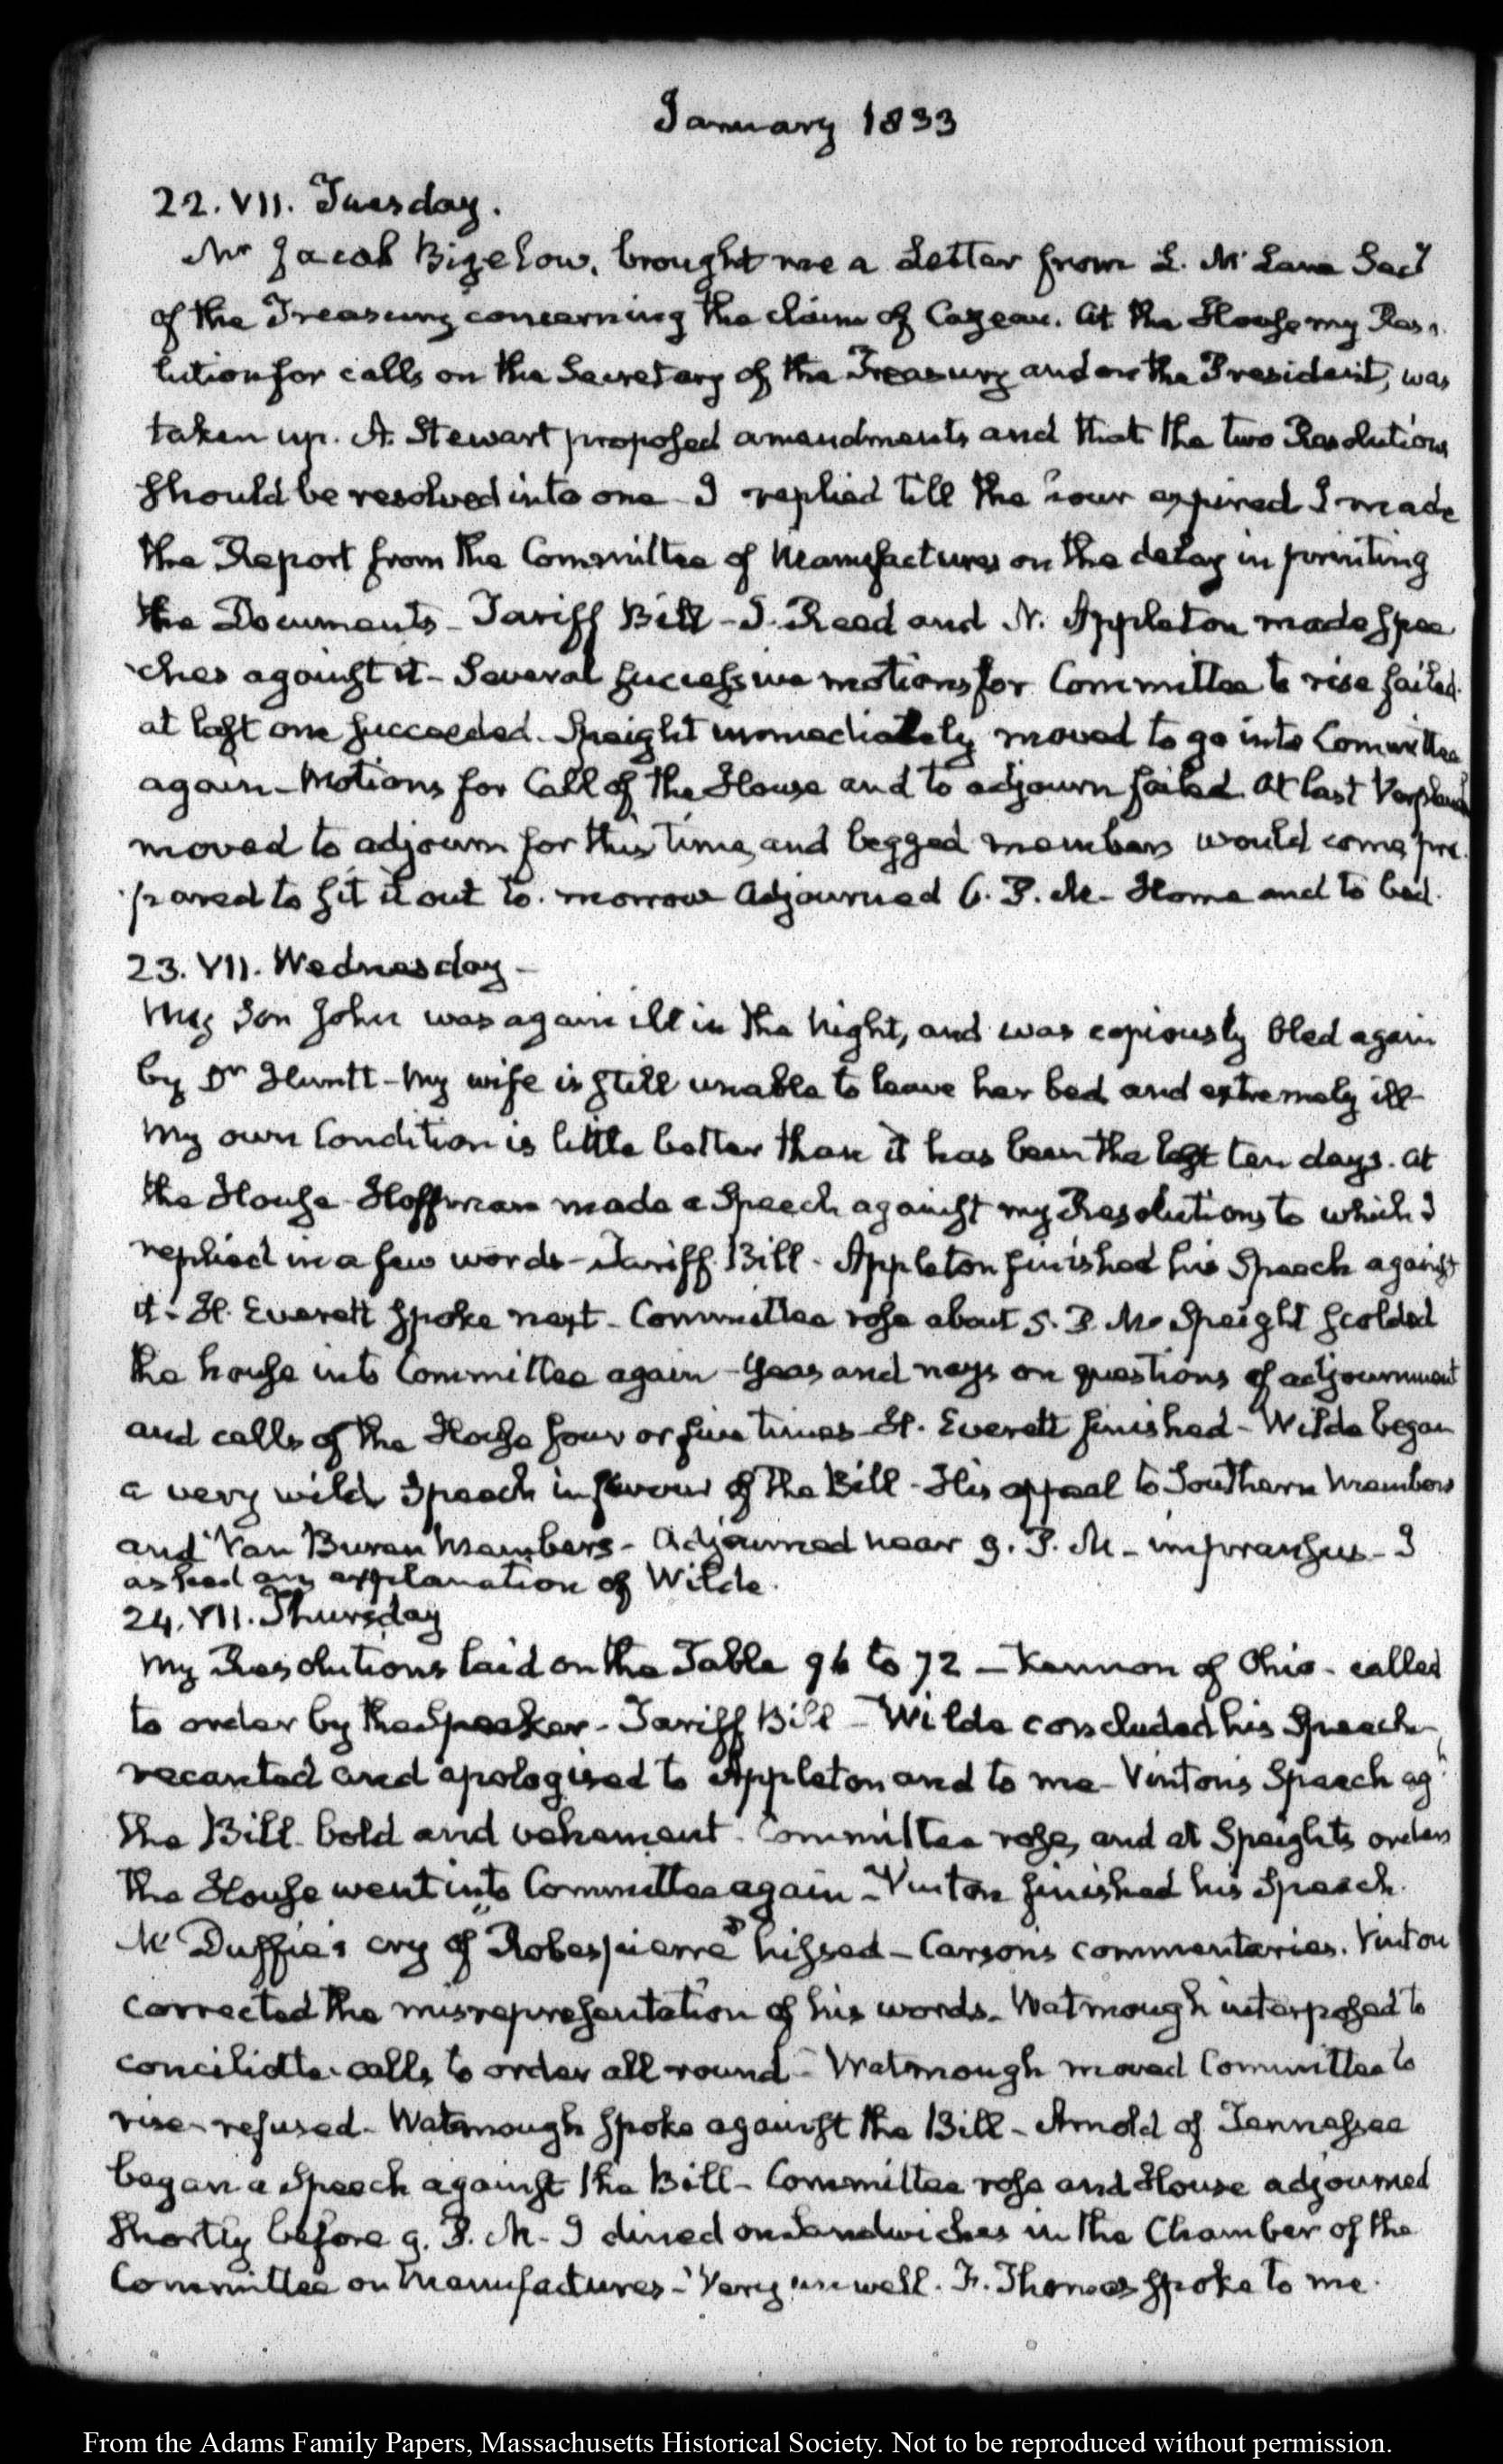 January 1833
22. VII. Tuesday.
Mr Jacob Bigelow, brought me a Letter from L. McLane Secy
of the Treasury concerning the claim of Cazeau. At the House my Reso
lution for calls on the Secretary of the Treasury and on the President, was
taken up. A. Stewart proposed amendments and that the two Resolutions
should be resolved into one - I replied till the hour expired I made
the Report from the Committee of Manufactures on the delay in printing
the Documents - Tariff Bill - J. Reed and N. Appleton made spee
ches against it - Several successive motions for Committee to rise failed.
at last one succeeded. Speight immediately moved to go into Committee
again - Motions for Call of the House and to adjourn failed. At last Verplanck
moved to adjourn for this time, and begged members would come pre
pared to sit it out to-morrow Adjourned 6. P.M. - Home and to bed.
23. VII. Wednesday -
My Son John was again ill in the Night, and was copiously bled again
by Dr Huntt - My wife is still unable to leave her bed, and extremely ill -
My own Condition is little better than it has been the last ten days. At
the House - Hoffman made a Speech against my Resolutions to which I
replied in a few words - Tariff Bill - Appleton finished his Speech against
it - H. Everett spoke next - Committee rose about 5. P.M. Speight scolded
the house into Committee again - Yeas and nays on questions of adjournment
and calls of the House four or five times - H. Everett finished - Wilde began
a very wild Speech in favour of the Bill - His appeal to Southern Members
and Van Buren Members - Adjourned near 9. P.M - impransus - I
asked an explanation of Wilde.
24. VII. Thursday
My Resolutions laid on the Table 96 to 72 - Kennon of Ohio - called
to order by the Speaker - Tariff Bill - Wilde concluded his Speech -
recanted and apologised to Appleton and to me - Vinton's Speech agt
the Bill - bold and vehement - Committee rose, and at Speights orders
the House went into Committee again - Vinton finished his Speech.
McDuffie's cry of "Robespierre" hissed - Carson's commentaries. Vinton
corrected the misrepresentation of his words - Watmough interposed to
conciliate - calls to order all round - Watmough moved Committee to
rise - refused - Watmough spoke against the Bill - Arnold of Tennessee
began a Speech against the Bill - Committee rose and House adjourned
shortly before 9. P.M - I dined on Sandwiches in the Chamber of the
Committee on Manufactures - Very unwell. F. Thomas spoke to me.
From the Adams Family Papers, Massachusetts Historical Society. Not to be reproduced without permission.